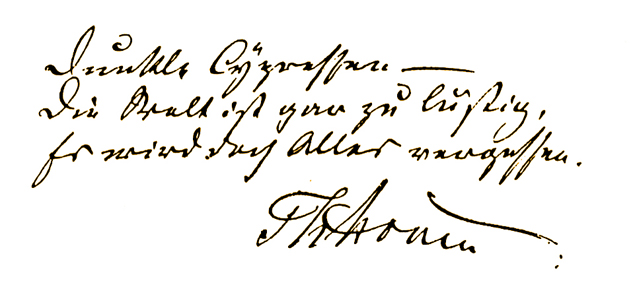 Dunkle Cypressen —
Die Welt ist gar zu lustig,
Es wird doch Alles vergessen.
ThStorm